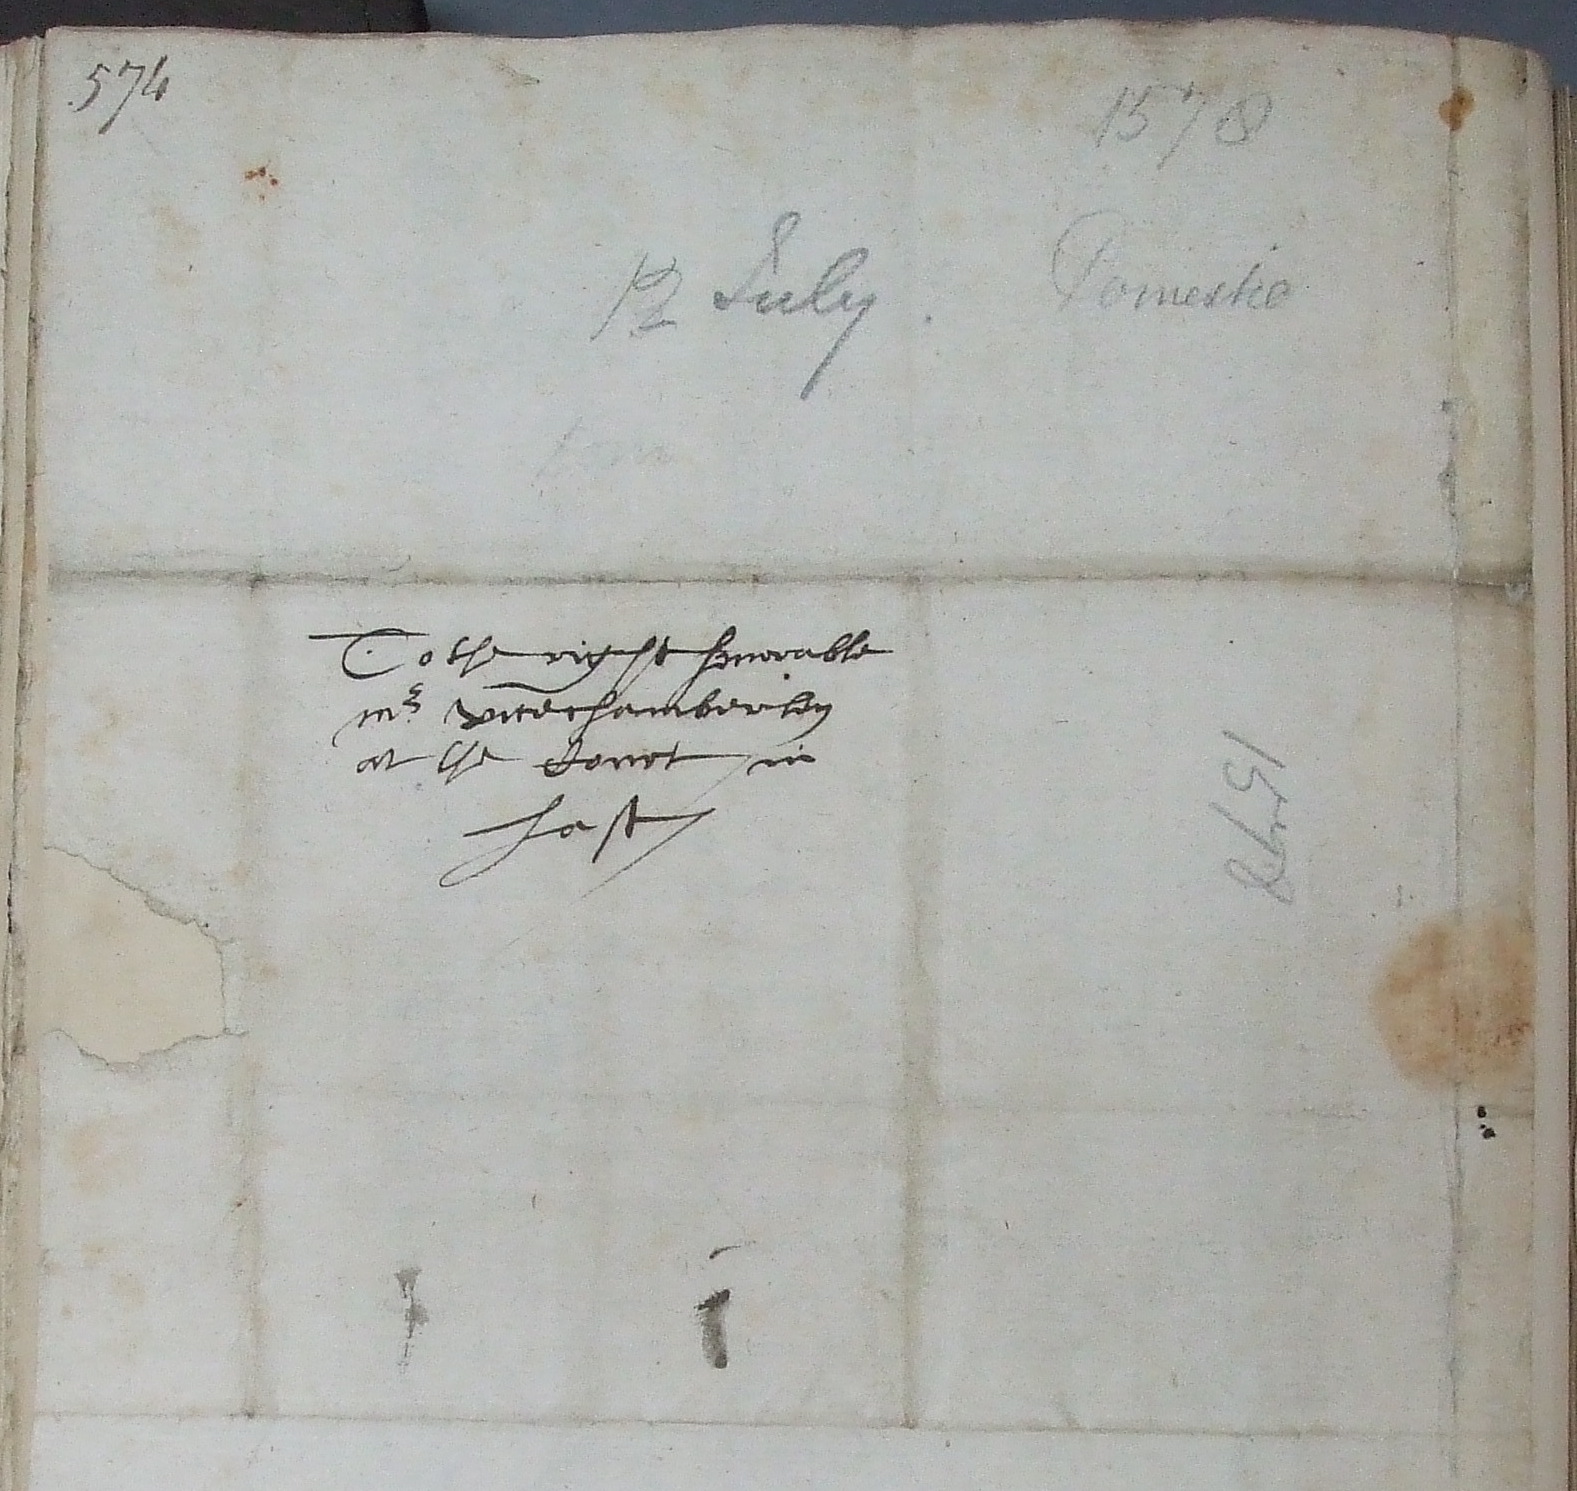 574
1578
12 July. Domestic
To the right honorable
mr vicechamberleyn
at the Court in
hast
1578